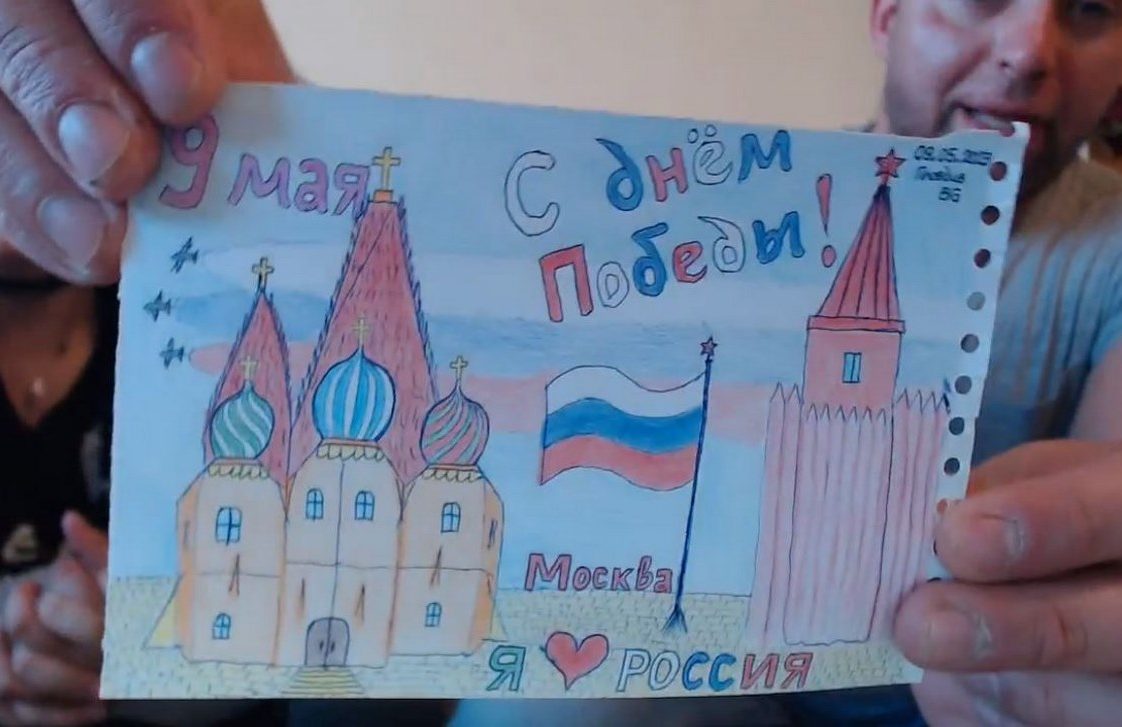 9 мая
С днём
Победы!
09.05.
Пловдив
BG
Москва
Я ❤ РОССИЯ